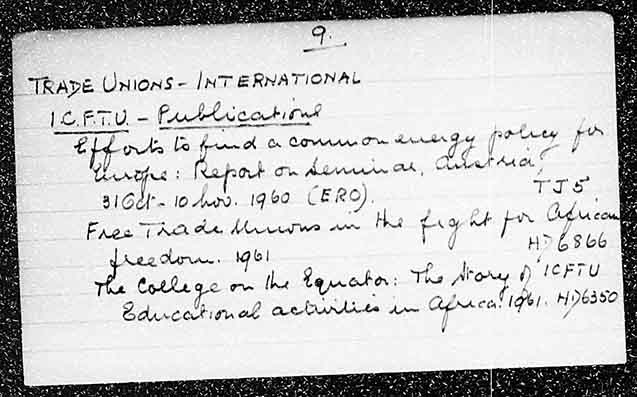 9.
TRADE UNIONS - INTERNATIONAL
I.C.F.T.U. - Publications
Efforts to find a common energy policy for
Europe: Report on Seminar, Austria,
31 Oct - 10 Nov. 1960 (ERO). TJ5
Free Trade Unions in the fight for African
freedom. 1961 HD6866
The College on the Equator: The Story of ICFTU
Educational activities in Africa. 1961. HD6350